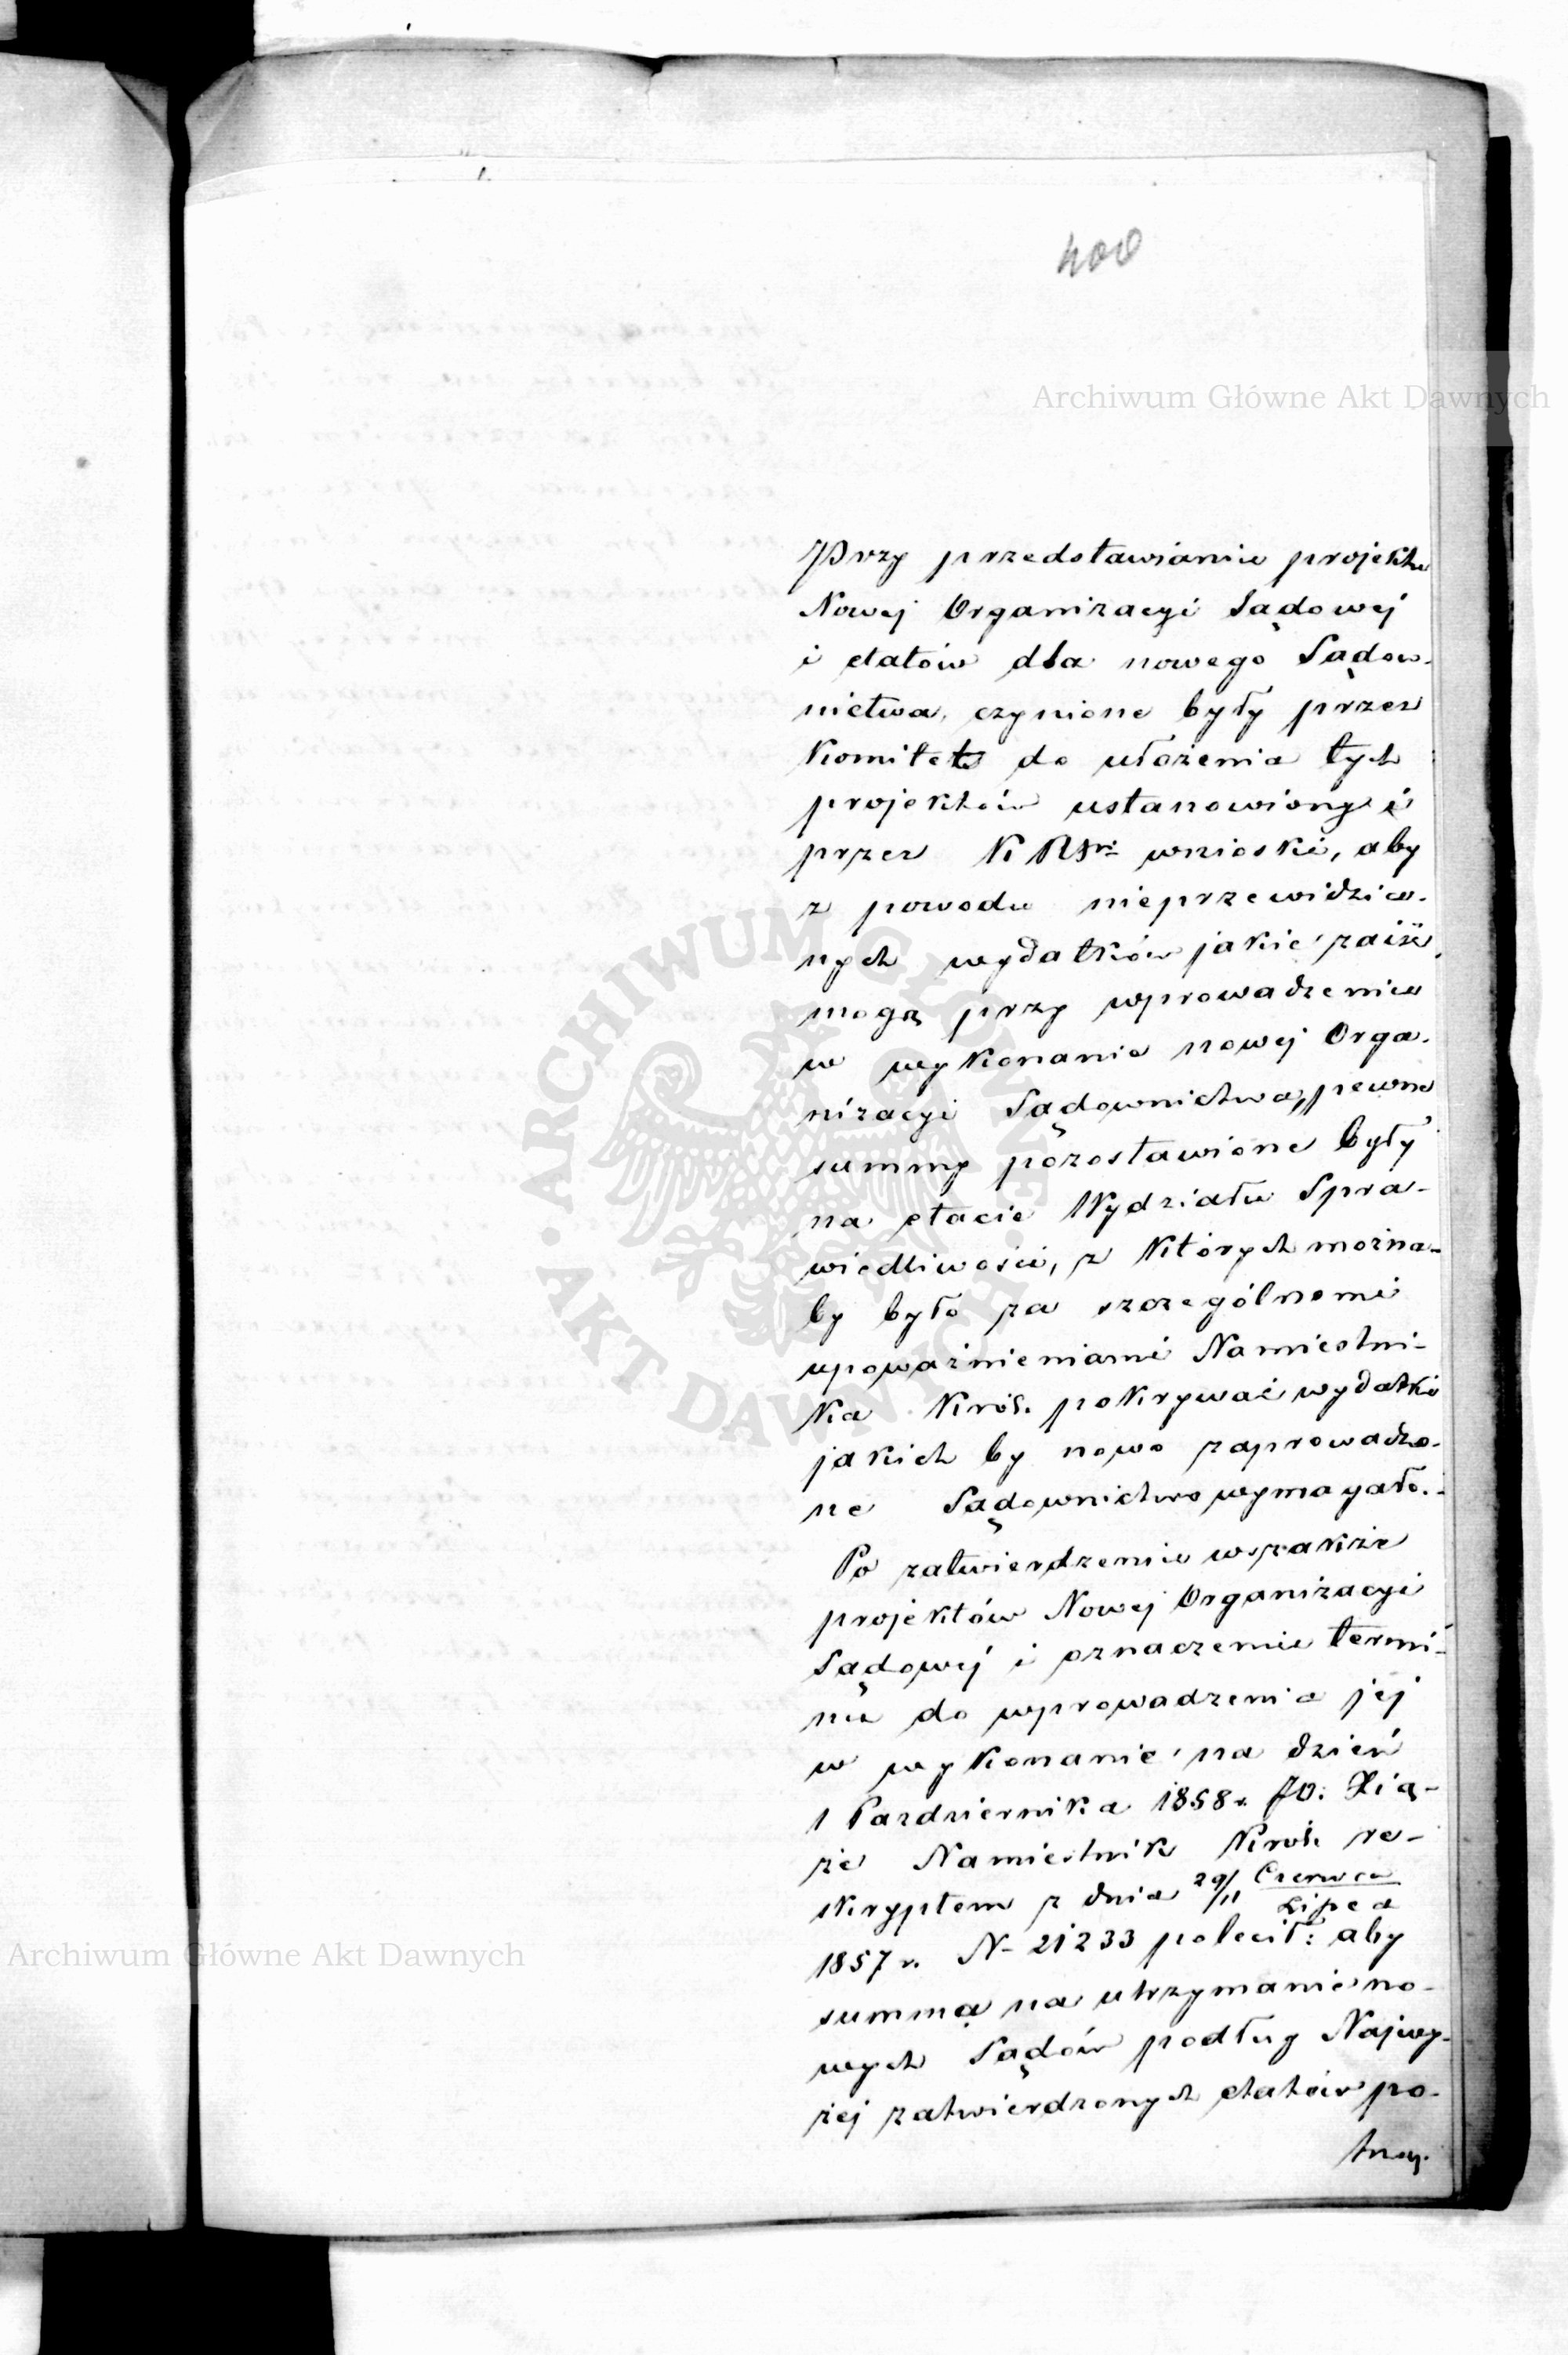 400
Archiwum Główne Akt Dawnych
Przy przedstawianiu projektu
Nowej Organizacyi Sądowej
i etatów dla nowego Sądow-
nictwa, czynione były przez
Komitet do ułożenia tych
projektów ustanowiony i
przez wnioski, aby
z powodu nieprzewidzia-
nych wydatków jakie zaiść
mogą przy wprowadzeniu
w wykonanie nowej Orga-
nizacyi Sądownictwa, pewne
summy pozostawione były
na etacie Wydziału Spra-
wiedliwości, z których można-
by było za szczególnemi
upoważnieniami Namiestni-
ka Król. pokrywać wydatki
jakich by nowo zaprowadzo-
ne Sądownictwo wymagało.
Po zatwierdzeniu wszakże
projektów Nowej Organizacyi
Sądowej i oznaczeniu termi-
nu do wprowadzenia jej
w wykonanie na dzień
1 Pazdziernika 1858 r. JO. Xią-
że Namiestnik Król. re-
skryptem z dnia 29/11 Czerwca
Lipca
1857 r. N- 21233 polecił: aby
summa na utrzymanie no-
wych Sądów podług Najwy-
żej zatwierdzonych etatów po-
ARCHIWUM GŁÓWNE
AKT DAWNYCH
Archiwum Główne Akt Dawnych